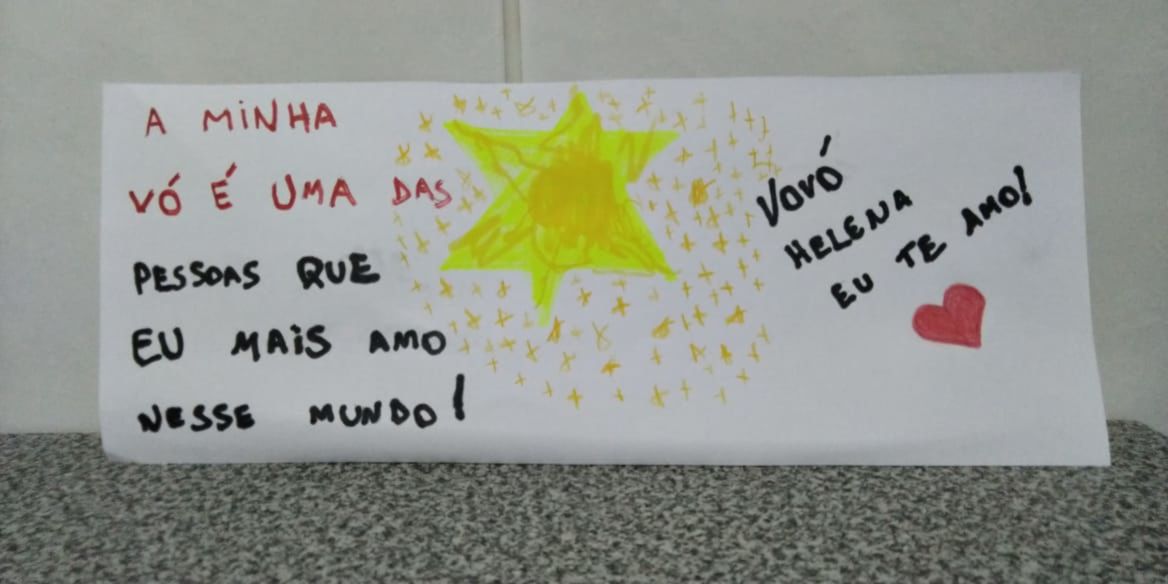 A MiNHA
VÓ É UMA DAS
PESSOAS QUE
EU MAiS AMO
NESSE MUNDO!
VOVÓ
HELENA
EU TE AMO!